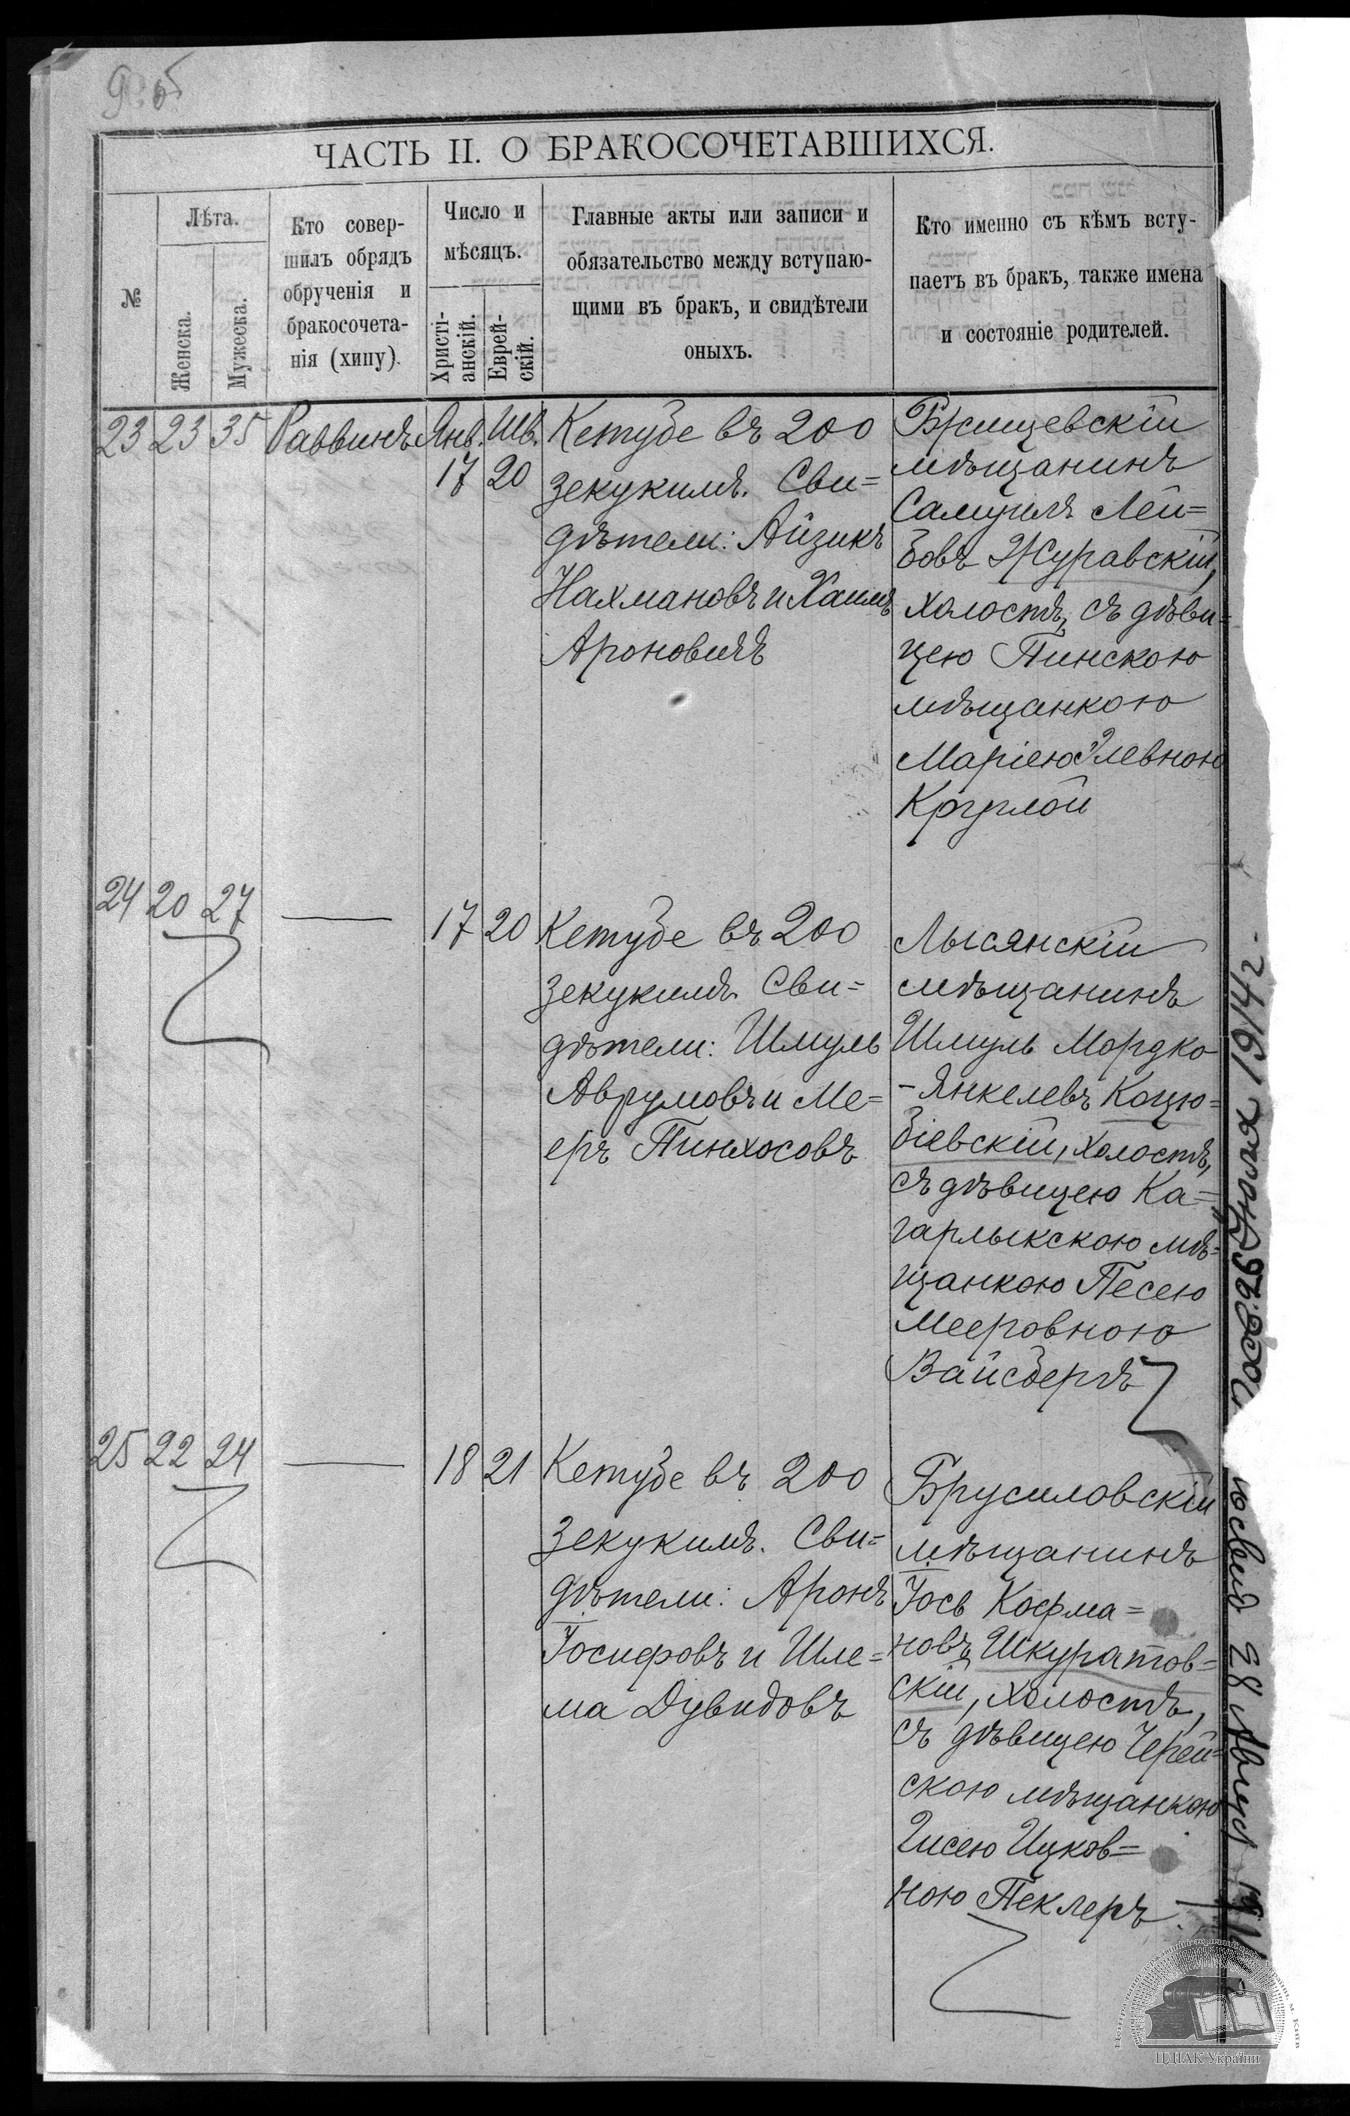 ЧАСТЬ II. О БРАКОСОЧЕТАВШИХСЯ.
№
Лѣта.
Женска.
Мужеска.
Кто совер-
шилъ обрядъ
обрученія и
бракосочета-
нія (хипу).
Число и
мѣсяцъ.
Христі-
анскій.
Еврей-
скій.
Главные акты или записи и
обязательство между вступаю-
щими въ бракъ, и свидѣтели
оныхъ.
Кто именно съ кѣмъ всту-
паетъ въ бракъ, также имена
и состояніе родителей.
23 23 35 Раввинъ Янв. Шв.
17 20
Кетубе въ 200
зекукимъ. Сви=
дѣтели: Айзикъ
Нахмановъ и Хаимъ
Ароновичъ
Ржищевскій
мѣщанинъ
Самуилъ Лей=
бовъ Журавскій,
холостъ, съ дѣви=
цею Пинскою
мѣщанкою
Маріею Элевною
Круглой
24 20 27 — 17 20
Кетубе въ 200
зекукимъ. Сви=
дѣтели: Шмуль
Аврумовъ и Ме=
еръ Пинхосовъ
Лысянскій
мѣщанинъ
Шмуль Мордко
-Янкелевъ Коцю=
біевскій, холостъ,
съ дѣвицею Ка=
гарлыкскою мѣ=
щанкою Песею
Мееровною
Вайсбергъ
25 22 24 — 18 21
Кетубе въ 200
зекукимъ. Сви=
дѣтели: Аронъ
Іосифовъ и Шле=
ма Дувидовъ
Брусиловскій
мѣщанинъ
Іось Кофма=
новъ Шкуратов=
скій, холостъ,
съ дѣвицею Черей=
скою мѣщанкою
Чисею Ицков=
ною Пеклеръ.
Іюля 1914 г.
28 Август
ЦДІАК України